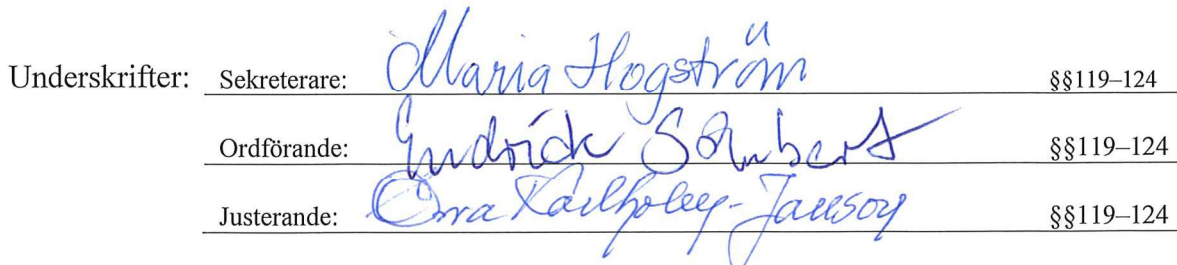 Underskrifter: Sekreterare: Maria Hogström §§119–124
Ordförande: Endrick Schubert §§119–124
Justerande: Karlholm-Janson §§119–124